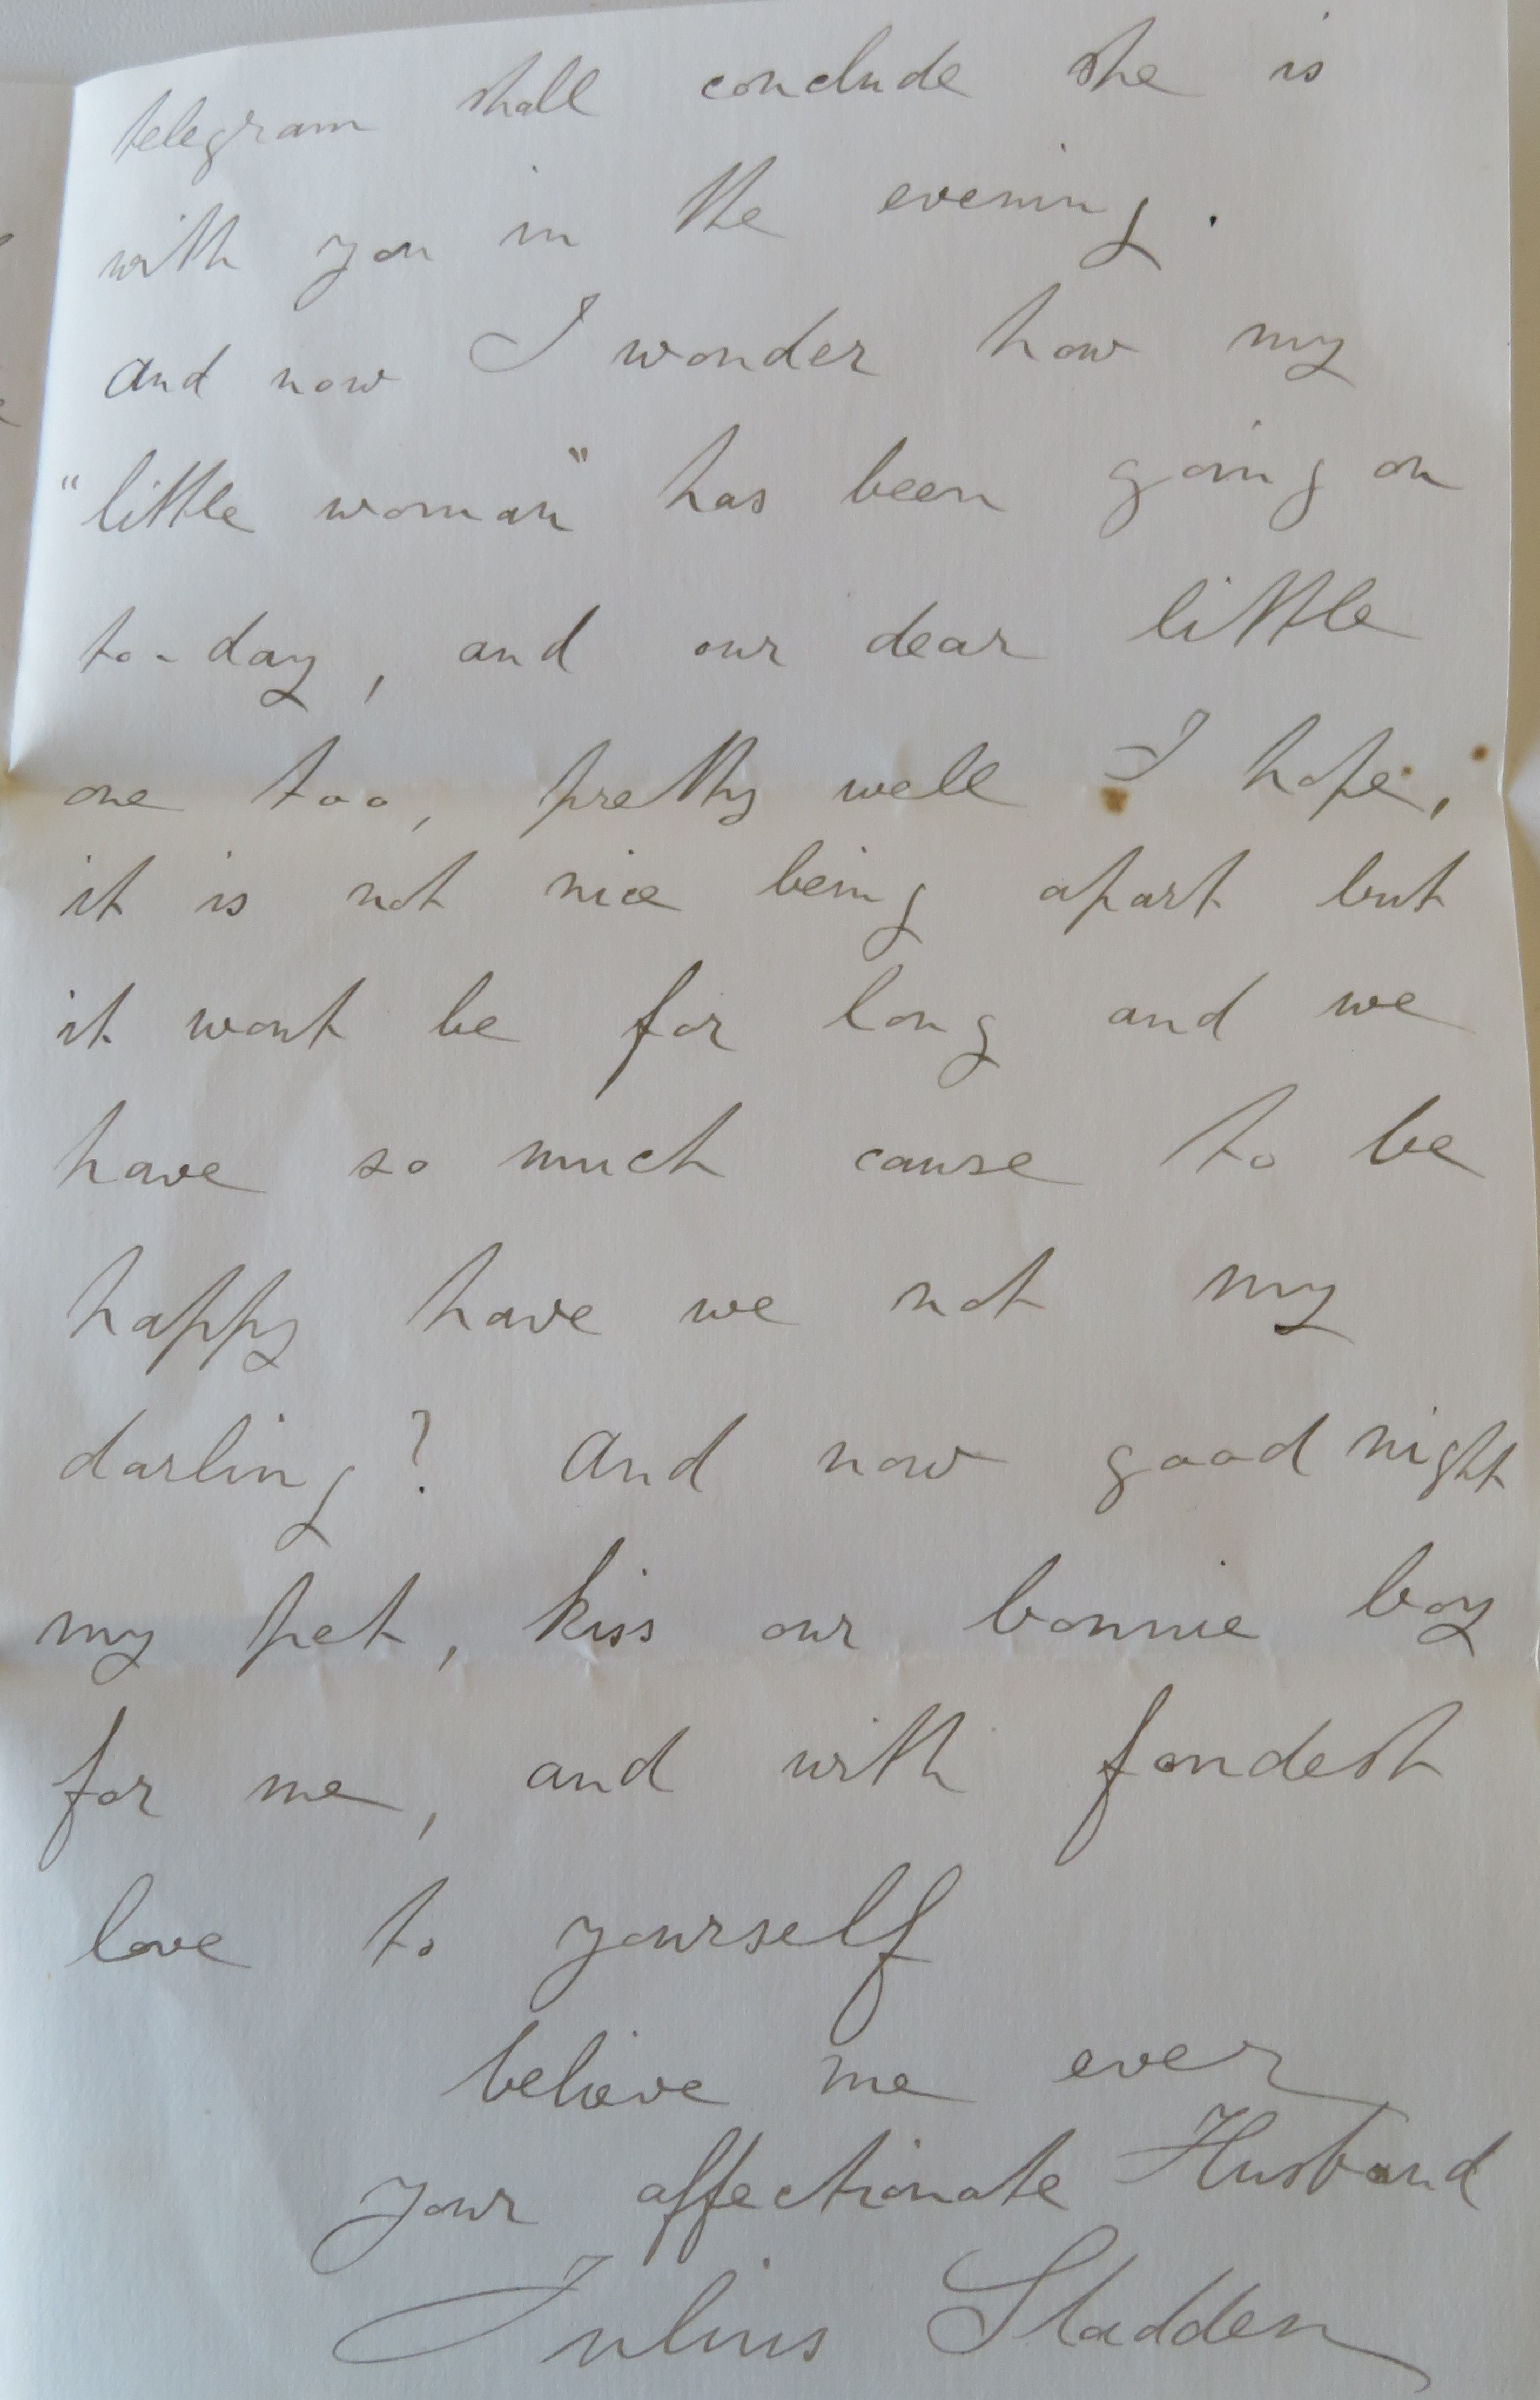 telegram shall conclude she is
with you in the evening.
and now I wonder how my
"little woman" has been going on
to-day, and our dear little
one too, pretty well I hope,
it is not nice being apart but
it wont be for long and we
have so much cause to be
happy have we not my
darling? And now good night
my pet, kiss our bonnie boy
for me, and with fondest
love to yourself
believe me ever
your affectionate Husband
Julius Sladden